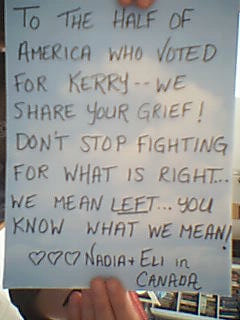 TO THE HALF OF
AMERICA WHO VOTED
FOR KERRY--WE
SHARE YOUR GRIEF!
DON'T STOP FIGHTING
FOR WHAT IS RIGHT...
WE MEAN LEFT...YOU
KNOW WHAT WE MEAN!
♡♡♡ NADIA + ELI in
CANADA